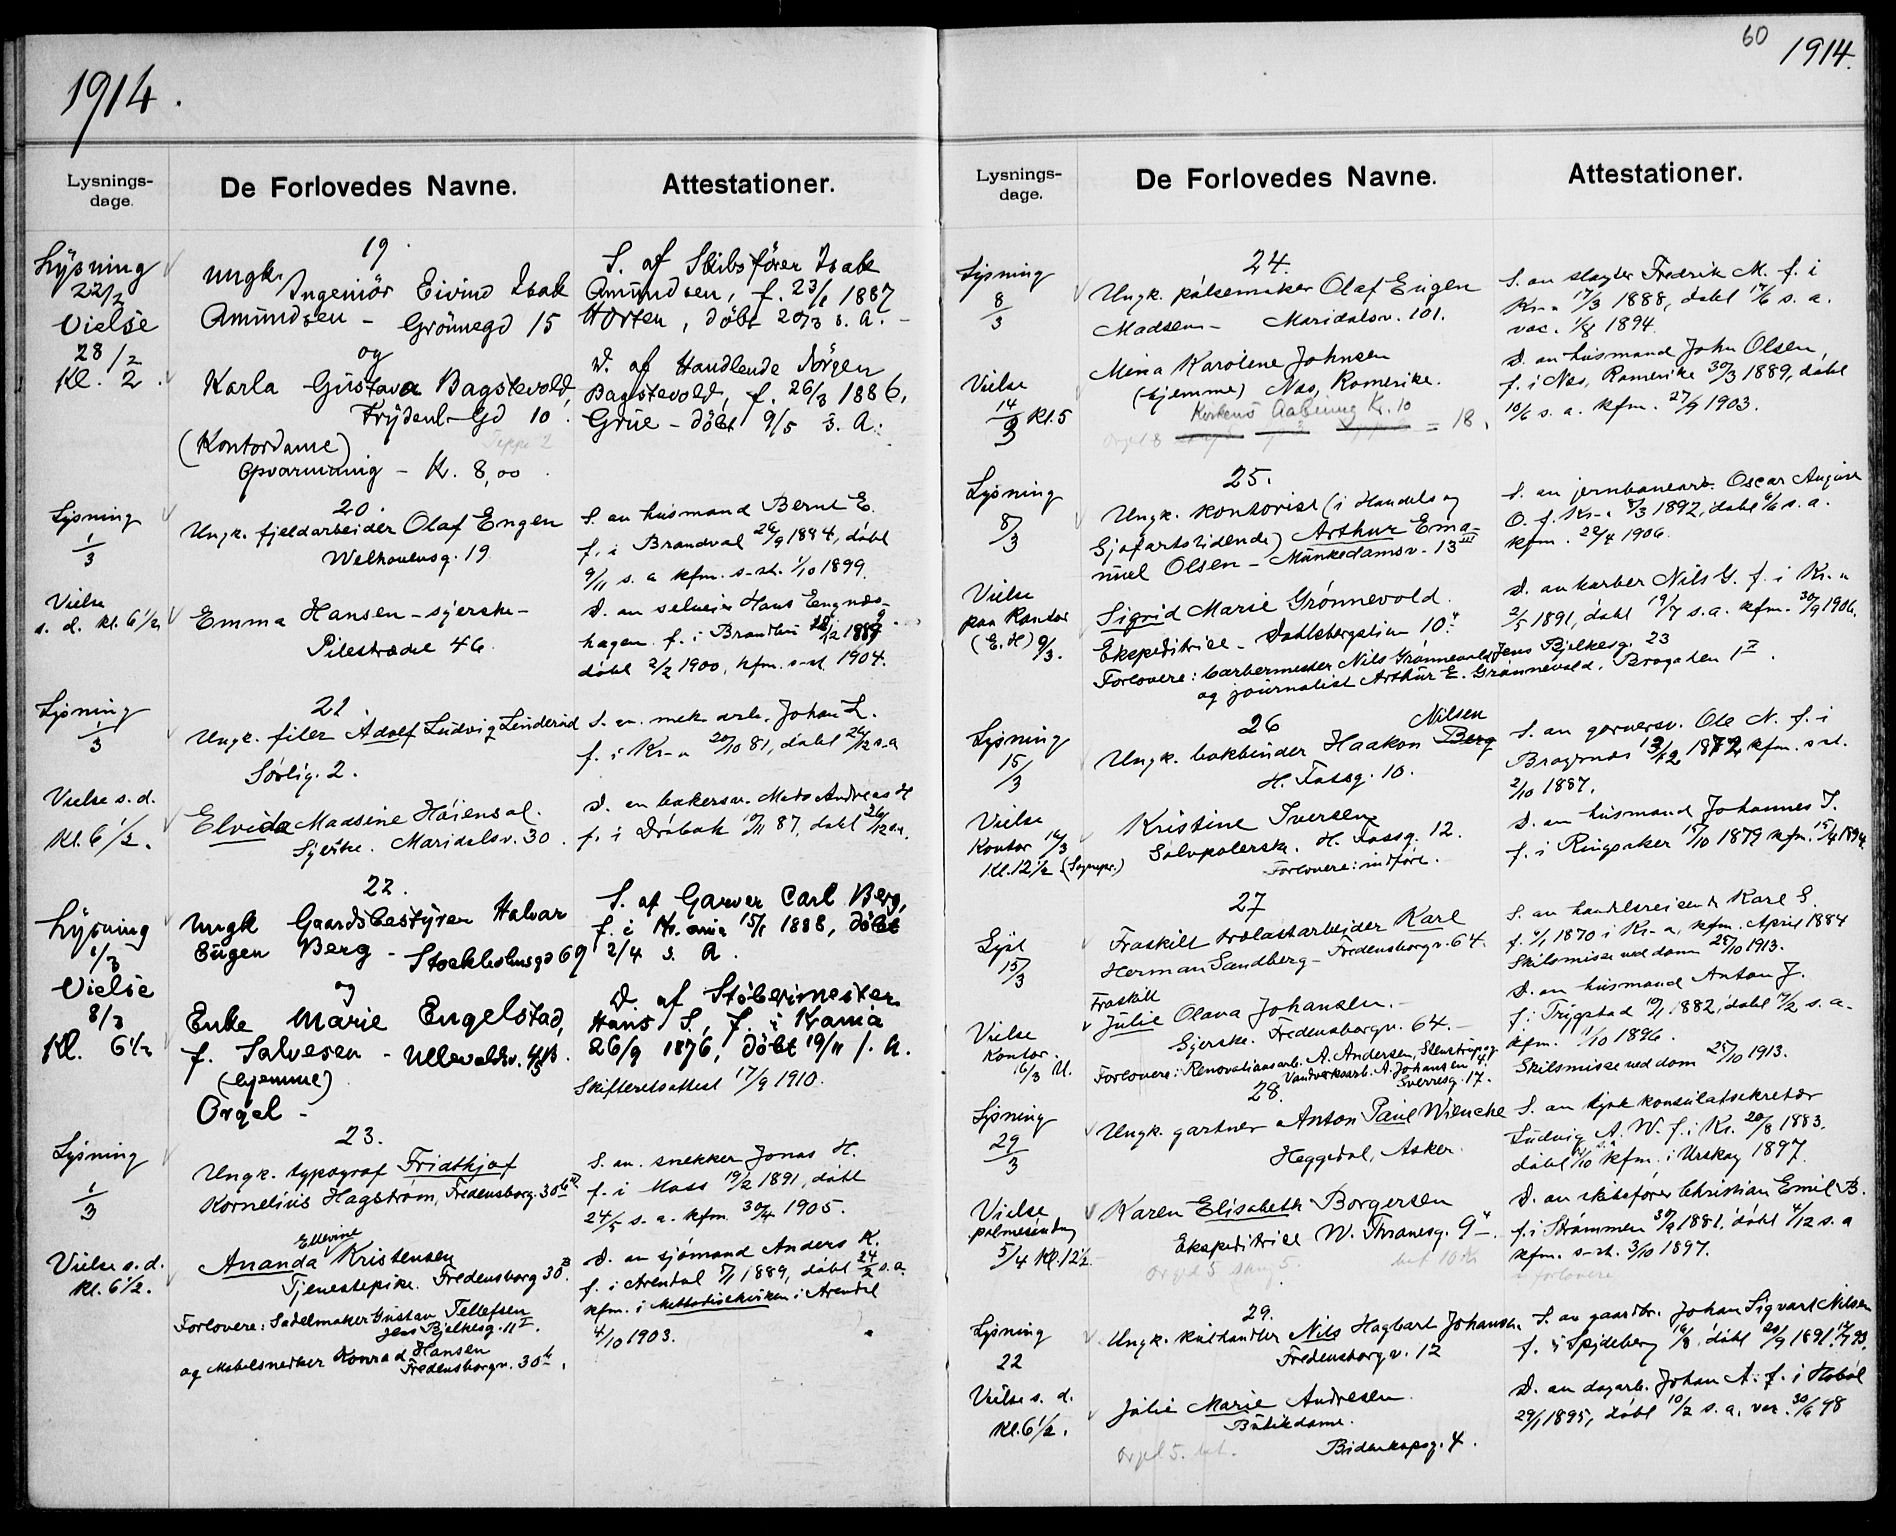 1914.
Lysnings-
dage.
De Forlovedes Navne.
Attestationer.
19.
Lysning
22/2
Vielse
28/2
Kl. 2.
Ungk. Ingeniör Eivind Isak
Amundsen - Grönnegd 15
og
Karla Gustava Bagstevold,
Frydenl. Gd 10.
(Kontordame)
Opvarmning - Kr. 8,00
S. af Skibsförer Isak
Amundsen, f. 23/1 1887
Horten, döbt 20/3 s. A.
D. af Handlende Jörgen
Bagstevold, f. 26/3 1886,
Grue - döbt 9/5 s. A.
20.
Lysning
1/3
Vielse
s. d. kl. 6 1/2
Ungk. fjeldarbeider Olaf Engen
Welhavensg. 19.
Emma Hansen - syerske -
Pilestrædet 46.
S. av husmand Bernt E.
f. i Brandval 26/9 1884, døbt
9/11 s. a. kfm. s. st. 1/10 1899.
D. av selveier Hans
hagen f. i
døbt 2/2 1900, kfm. s. st. 1904.
21.
Lysning
1/3
Vielse s. d.
Kl. 6 1/2.
Ungk. filer Adolf Ludvig Linderud
Sörlig. 2.
Elvida Maasine Høiensal.
Syerske. Maridalsv. 30.
S. av mek. arb. Johan L.
f. i Kr-a 20/10 81, døbt 26/12 s. a
D. av bakersv. Mads Andreas H
f. i Dröbak 10/11 87, døbt 26/12 s. a.
22.
Lysning
1/3
Vielse
8/3
Kl. 6 1/2
Ungk Gaardsbestyrer Halvar
Eugen Berg - Stockholmsgd 69
og
Enke Marie Engelstad,
f. Salvesen - Ullevoldsv. 43
(hjemme)
Orgel -
S. af Garver Carl Berg,
f. i Kr.ania 15/1 1888, döbt
2/4 s. A.
D. af Stöberimester
Hans S., f. i Krania
26/9 1876, döbt 19/11 s. A.
Skifteretsattest 17/9 1910.
23.
Lysning
1/3
Vielse s. d.
kl. 6 1/2.
Ungk. typograf Fridthjof
Kornelius Hagstrøm, Fredensborg. 30
Ellevine
Ananda Kristensen
Tjenestepike. Fredensborg 30
Forlovere: Sadelmaker Gustav Tellefsen
Jens Bjelkesg. 11
og Møbelsnekker Konrad Hansen
Fredensborgv. 30
S. av snekker Jonas H.
f. i Moss 19/2 1891, døbt
24/5 s. a. kfm. 30/4 1905.
D. av sjømand Anders K.
f. i Arendal 5/1 1889, døbt 24/2 s. a.
kfm. i Methodistkirken i Arendal
4/10 1903.
60
1914.
Lysnings-
dage.
De Forlovedes Navne.
Attestationer.
24.
Lysning
8/3
Vielse
14/3 kl. 5
Ungk. pølsemaker Olaf Eugen
Madsen - Maridalsv. 101.
Mina Karoline Johnsen
(hjemme) Nes, Romerike.
Kirkens Aabning Kr. 10
Orgel 8 = 18.
S. av slagter Fredrik M. f. i
Kr-a 17/3 1888, døbt 17/6 s. a.
vac. 1/8 1894.
D. av husmand John Olsen,
f. i Nes, Romerike 30/3 1889, døbt
10/6 s. a. kfm. 27/9 1903.
25.
Lysning
8/3
Vielse
paa Kontor
(E. H) 9/3.
Ungk. kontorist (i Handels og
Sjøfartstidende) Arthur Ema-
nuel Olsen - Munkedamsv. 13 III
Sigrid Marie Grønnevold.
Ekspeditrice - Dahlsbergstien 10.
Forlovere: barbermester Nils Grønnevold, Jens Bjelkesg. 23
og journalist Arthur E. Grønnevold. Brogaten 1
S. av jernbanearb. Oscar August
O. f. Kr-a 8/3 1892, døbt 6/6 s. a.
kfm. 22/4 1906.
D. av barber Nils G. f. i Kr-a
2/5 1891, døbt 19/7 s. a. kfm. 30/9 1906.
26
Lysning
15/3
Vielse
Kontor 16/3
Kl. 12 1/2 (Sognepr.)
Nilsen
Ungk. bokbinder Haakon Berg
H. Fossg. 10.
Kristine Iversen
Sølvpolerske. H. Fossg. 12.
Forlovere: indføre.
S. av garversv. Ole N. f. i
Bragernes 13/12 1872, kfm. s. st.
2/10 1887.
D. av husmand Johannes I.
f. i Ringsaker 15/10 1879 kfm. 15/4 1894
27
Lyst
15/3
Vielse
Kontor.
16/3 U.
Fraskilt trælastarbeider Karl
Herman Sandberg - Fredensborgv. 64.
Fraskilt
Julie Olava Johansen.
Syerske. Fredensborgv. 64.
Forlovere: Renovationsarb. A. Andersen, Stenstrupsg
Vandverksarb. A. Johansen
Sverresg. 17.
S. av handelsreisende Karl S.
f. 4/1 1870 i Kr-a, kfm. April 1884
Skilsmisse ved dom 25/10 1913.
D. av husmand Anton J.
f. i Trygstad 10/1 1882, døbt 12/2 s. a.
kfm. 1/10 1896.
Skilsmisse ved dom 25/10 1913.
28.
Lysning
29/3
Vielse
palmesøndag
5/4 Kl. 12 1/2
Ungk. gartner Anton Paul Wiencke
Heggedal, Asker.
Karen Elisabeth Borgersen
Ekspeditrice W. Thranesg. 9
Orgel 5 sang 5. bet 10 Kr
S. av tysk konsulatsekretær
Ludvig A. W. f. i Kr. 20/8 1883.
døbt /10 s. a. kfm. i Urskog 1897.
D. av skibsfører Christian Emil B.
f. i Strømmen 30/9 1881, døbt 4/12 s. a
kfm. s. st. 3/10 1897.
forlovere
29.
Lysning
22
Vielse s. d.
Kl. 6 1/2.
Ungk. kulhandler Nils Hagbart Johansen
Fredensborgv. 12
Julie Marie Andresen.
Butikdame.
Briskebyg. 4.
Orgel 5. bet.
S. av gaardbr. Johan Sigvart Nilsen
f. i Spydeberg 16/8, døbt 20/9 1891.
D. av dagarb. Johan A. f. i Hobøl
29/1 1895, døbt 10/2 s. a. vac. 30/6 98